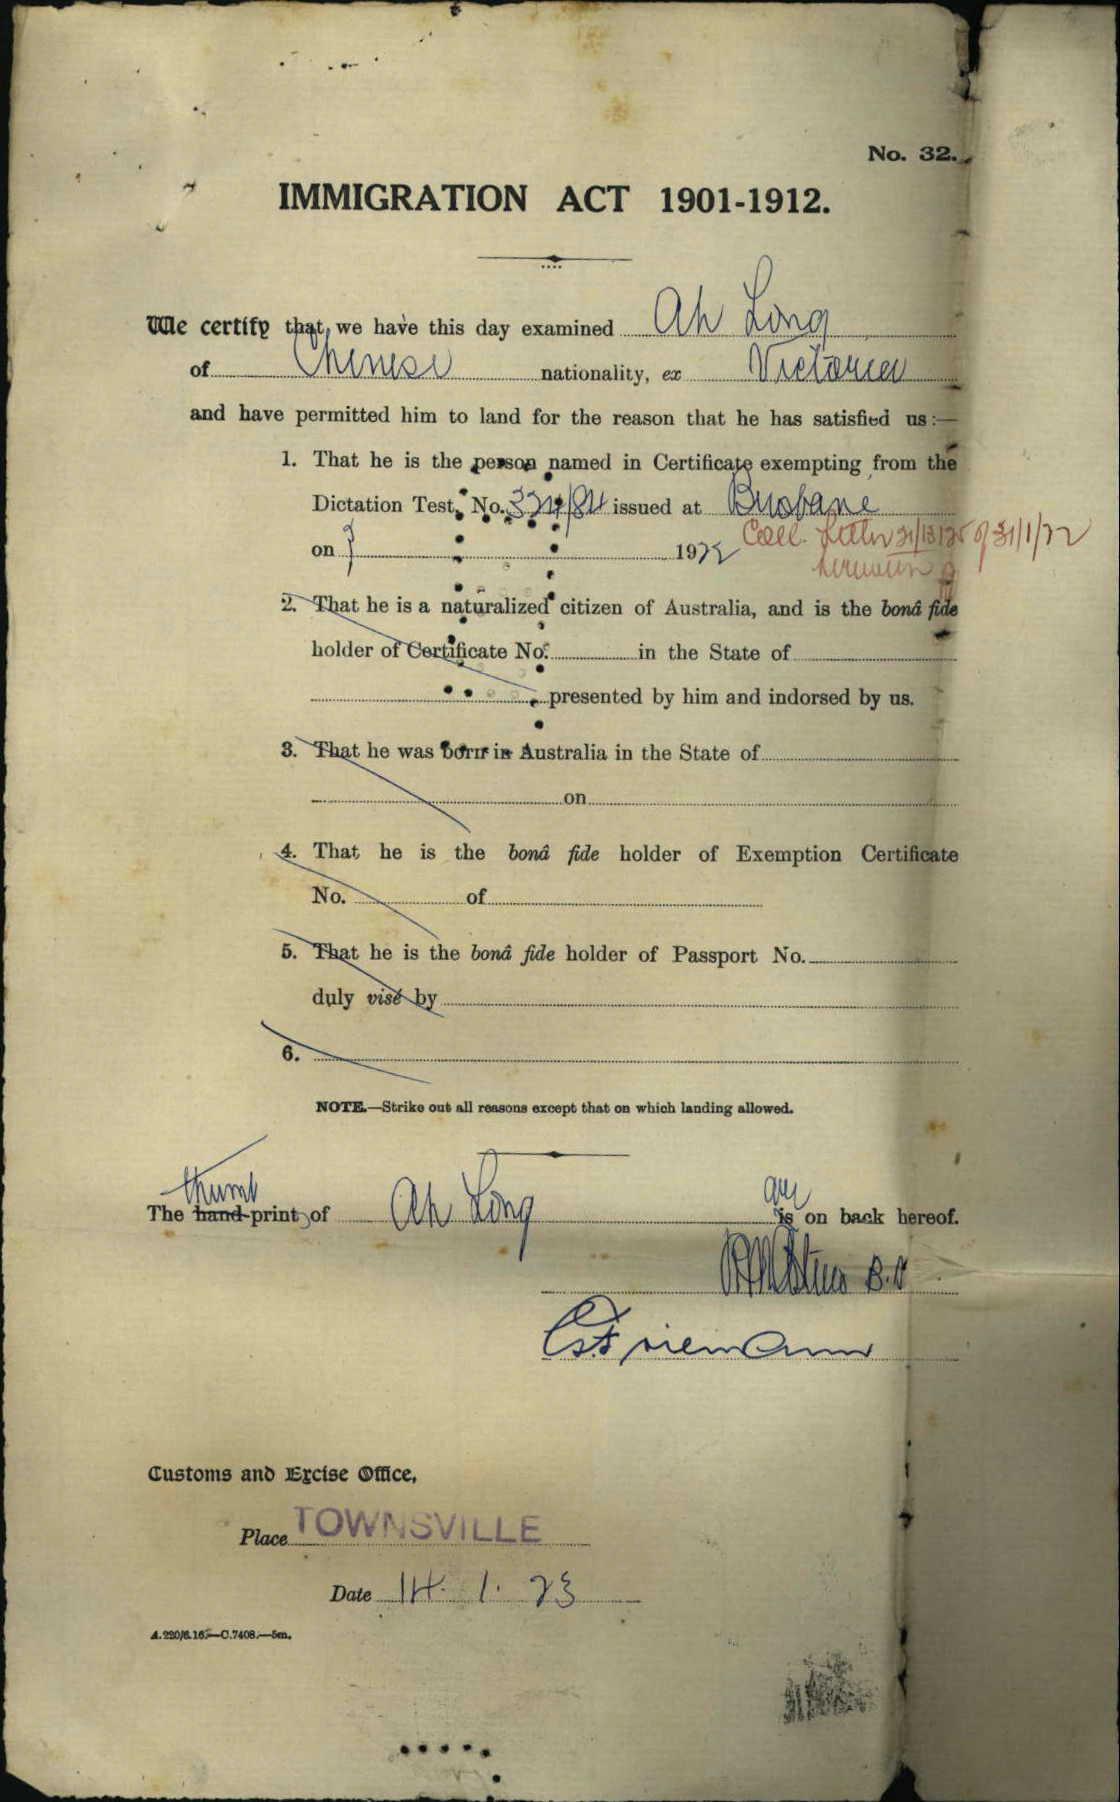 No. 32.
IMMIGRATION ACT 1901-1912.
We certify that, we have this day examined Ah Long
of Chinese nationality, ex Victoria
and have permitted him to land for the reason that he has satisfied us:—
1. That he is the person named in Certificate exempting from the
Dictation Test, No. 334/84 issued at Brisbane
on 1922 Coll. Letter 21/13125 of 31/1/22
2. That he is a naturalized citizen of Australia, and is the bonâ fide
holder of Certificate No. in the State of
presented by him and indorsed by us.
3. That he was born in Australia in the State of
on
4. That he is the bonâ fide holder of Exemption Certificate
No. of
5. That he is the bonâ fide holder of Passport No.
duly visé by
6.
NOTE.—Strike out all reasons except that on which landing allowed.
thumb are
The hand-print of Ah Long is on back hereof.
Customs and Excise Office,
Place TOWNSVILLE
Date 14. 1. 23
A.220/6.16.—C.7408.—5m.